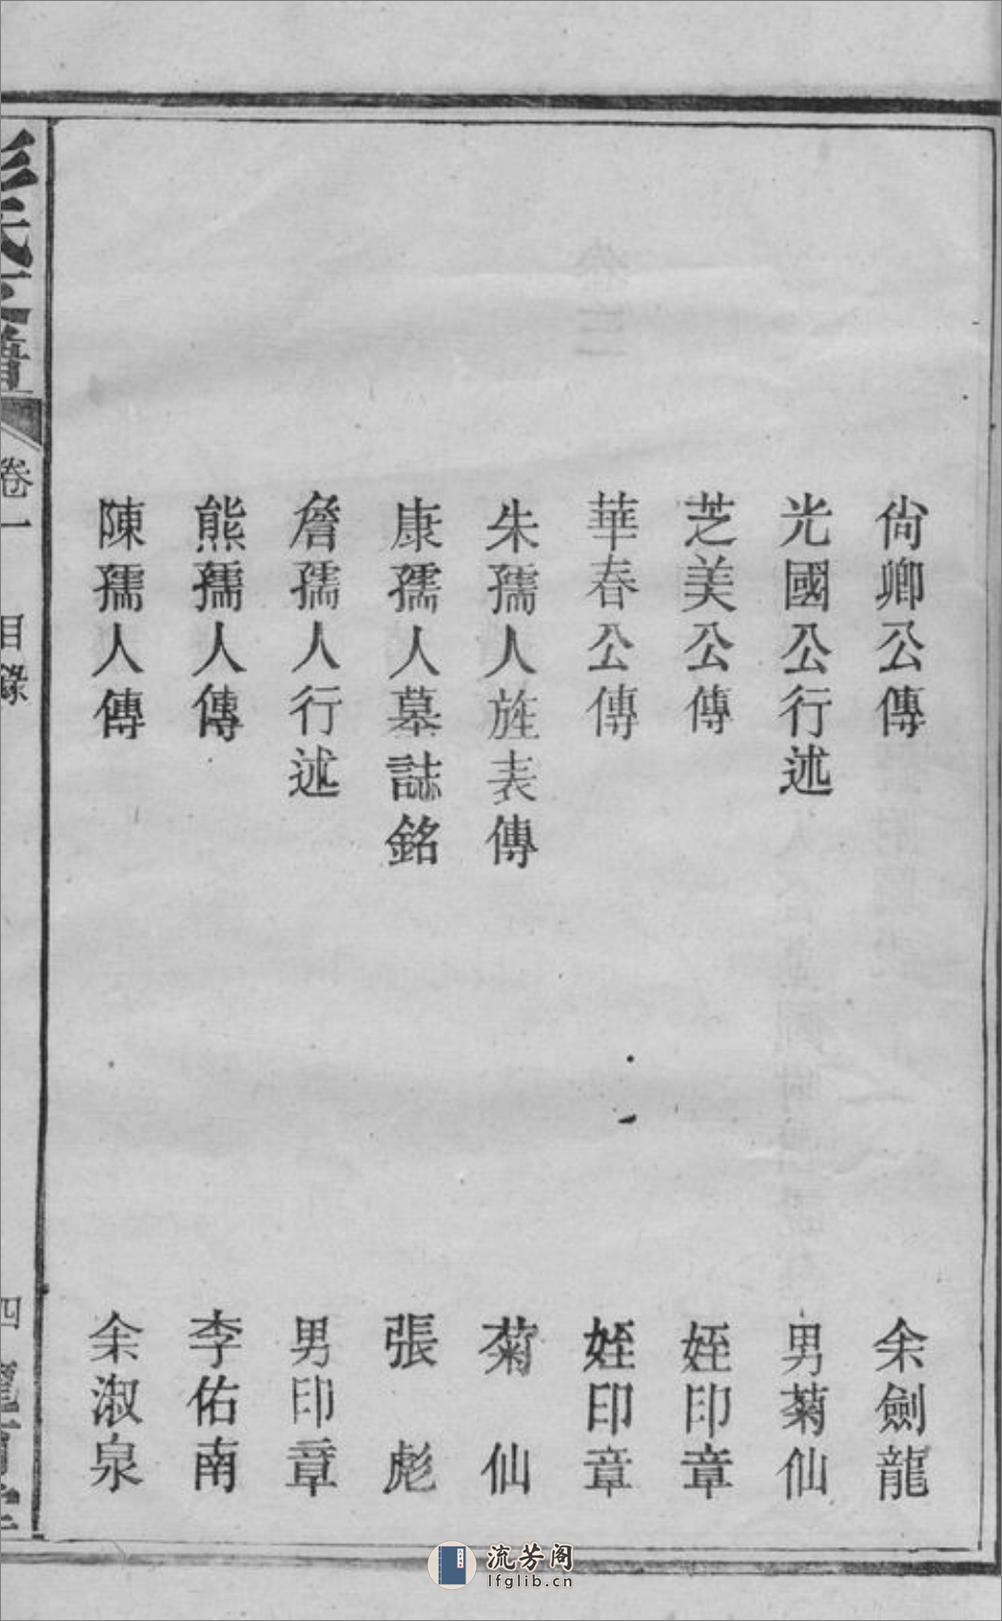 尙卿公傳　余劍龍
光國公行述　男菊仙
芝美公傳　姪印章
華春公傳　姪印章
朱孺人旌表傳　菊仙
康孺人墓誌銘　張彪
詹孺人行述　男印章
熊孺人傳　李佑南
陳孺人傳　余淑泉
氏
譜
卷一　目錄
四
流芳阁
lfglib.cn